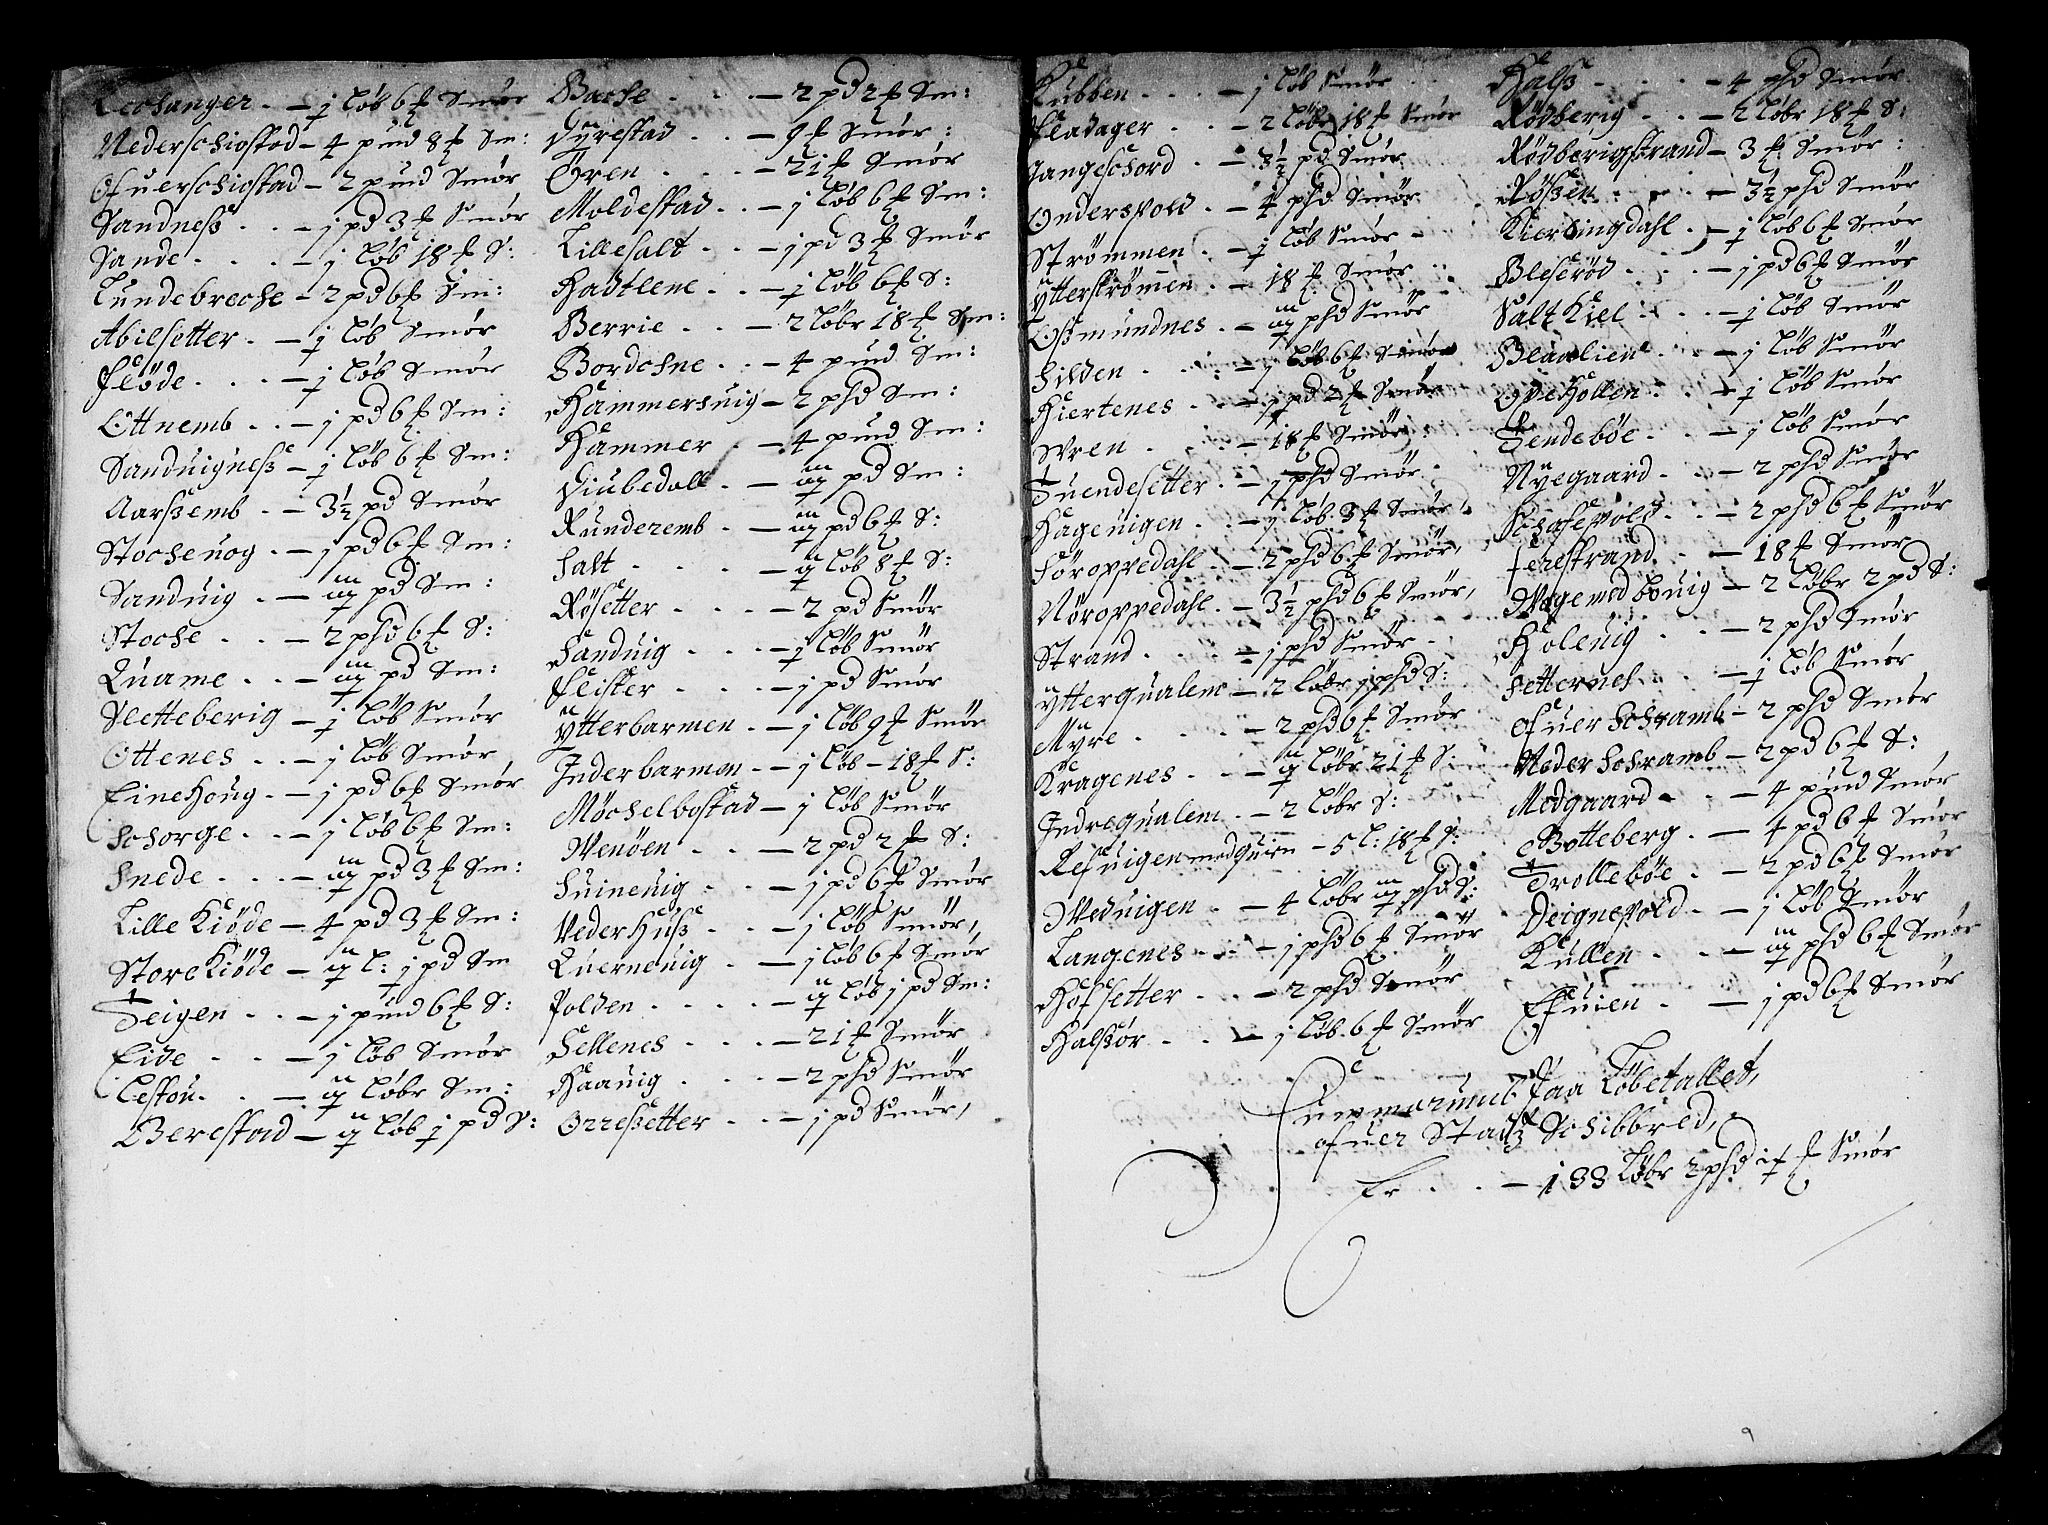 Lechanger - j løb 6 ₤ Smør
Nederschiostad - 4 pund 8 ₤ Sm:
Ofuerschiostad - 2 pund Smør
Sandness - j pd 3 ₤ Smør
Sande - j løb 18 ₤ S:
Lundebreche - 2 pd 6 ₤ Sm:
Abilsetter - j løb Smør
Fløde - j løb Smør
Ottnemb - j pd 6 ₤ Sm:
Sanduigness - j løb 6 ₤ Sm:
Aarssemb - 3½ pd Smør
Stocheuog - j pd 6 ₤ Sm:
Sanduig - pd Sm:
Stoche - 2 phd 6 ₤ S:
Quame - pd Sm:
Sletteberig - j løb Smør
Ottenes - j løb Smør
Einehoug - j pd 6 ₤ Smør
Schorge - j løb 6 ₤ Sm:
Snede - pd 3 ₤ Sm:
Lille Kiøde - 4 pd 3 ₤ Sm:
Store Kiøde - l: j pd Sm
Teigen - j pund 6 ₤ S:
Eide - j løb Smør
Lestou - løbr Sm:
Berestad - løb j pd S:
Bache - 2 pd 2 ₤ Sm:
Dyrestad - 9 ₤ Smør:
Øren - 21 ₤ Smør
Moldestad - j løb 6 ₤ Sm:
Lillesalt - j pd 3 ₤ Smør
Hadtlene - j løb 6 ₤ S:
Berrie - 2 løbr 18 ₤ Sm:
Bordchne - 4 pund Sm:
Hammersuig - 2 phd Sm:
Hammer - 4 pund Sm:
Diubedall - pd Sm:
Runderemb - pd 6 ₤ S:
Salt - løb 8 ₤ S:
Røsetter - 2 pd Smør
Sanduig - j løb Smør
Flister - j pd Smør
Ytterbarmen - j løb 9 ₤ Smør
Inderbarmen - j løb - 18 ₤ S:
Møchelbostad - j løb Smør
Wenøen - 2 pd 2 ₤ S:
Suineuig - j pd 6 ₤ Smør
Vederhuss - j løb Smør,
Querneuig - j løb 6 ₤ Smør
Polden - løb j pd Sm:
Sellenes - 21 ₤ Smør
Haauig - 2 phd Smør
Orressetter - j pd Smør,
Kubben - j løb Smør
Fladager - 2 løbr 18 ₤ Smør
Langeschord - 3½ pd Smør
Onderspold - 4 phd Smør
Strømmen - j løb Smør
Ytterstrømen - 18 ₤ Smør
Ossmundnes - phd Smør
Silden - j løb 6 ₤ Smør
Hiertenes - j pd 2 ₤ Smør
Wren - 18 ₤ Smør
Tuendesetter - j phd Smør
Hageuigen - j løb 3 ₤ Smør
Søroppedahl - 2 phd 6 ₤ Smør,
Nøroppedahl - 3½ phd 6 ₤ Smør,
Strand - j phd Smør
Ytterqualem - 2 løbr j phd S:
Myre - 2 phd 6 ₤ Smør
Kragenes - løbr 21 ₤ S:
Indrequalem - 2 løbr S:
Refuigen med - 5 l: 18 ₤ S:
Weduigen - 4 løbr phd S:
Langenes - j phd 6 ₤ Smør
Hofsetter - 2 phd Smør
Halssør - j løb 6 ₤ Smør
Halss - 4 phd Smør
Rødberig - 2 løbr 18 ₤ S:
Rødberigstrand - 3 ₤ Smør:
Røssen - 3½ phd Smør
Kierlingdahl - j løb 6 ₤ Smør
Bleserød - j pd 6 ₤ Smør
Saltkiel - j løb Smør
Blaalien - j løb Smør
Opehollen - j løb Smør
Tendebøe - j løb Smør
Nyegaard - 2 phd Smør
Schafepold - 2 phd 6 ₤ Smør
ferestrand - 18 ₤ Smør
Wage med bouig - 2 løbr 2 pd S:
Holeuig - 2 phd Smør
Setternes - j løb Smør
Ofuer Schramb - 2 phd Smør
Neder Schramb - 2 pd 6 ₤ S:
Medgaard - 4 pund Smør
Botteberg - 4 pd 6 ₤ Smør
Trollebøe - 2 pd 6 ₤ Smør
Deignepold - j løb Smør
Kullen - phd 6 ₤ Smør
Efuien - j pd 6 ₤ Smør
Summarumb Paa Løbetallet,
ofuer Stadz Schibbred,
Er - 133 Løbr 2 phd ₤ Smør